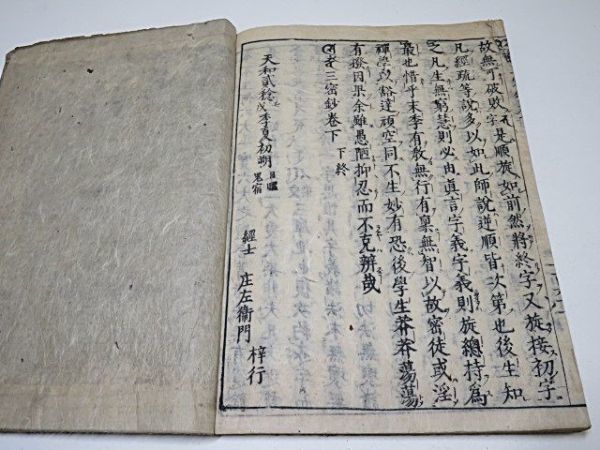 故無了破敗字是順旋如前然將終字又旋接初字
凡經疏等說多以如此師說逆順皆次第也後生知
之凡生無窮慧則必由眞言字義字義則旋總持爲
最也惜乎末季有敎無行有稟無智以故密徒或淫
禪學以豁達頑空同不生妙有恐後學生莽莽蕩蕩
有撥因果余雖愚陋抑忍而不克辨哉
者三密鈔卷下 下終
天和貳稔季夏初朔
鬼宿
經士 庄左衞門 梓行